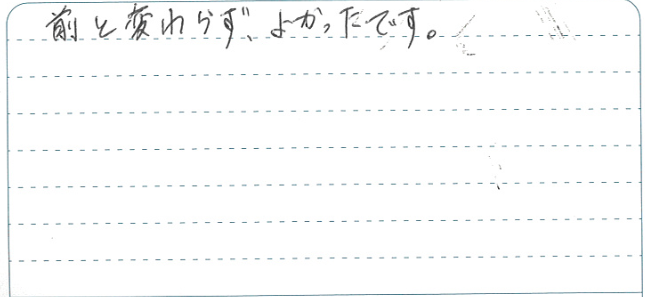 前と変わらず、よかったです。